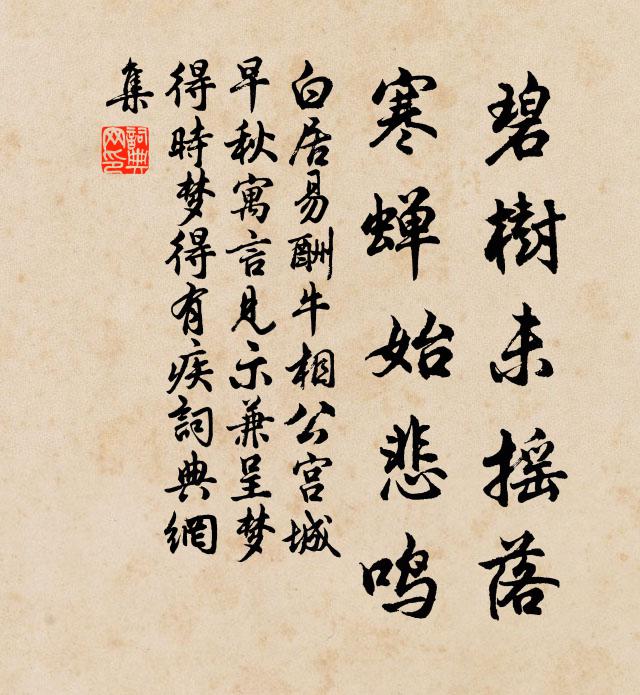 碧樹未摇落
寒蝉始悲鸣
白居易酬牛相公宫城
早秋寓言見示兼呈梦
得時梦得有疾詞典網
集
詞典網印